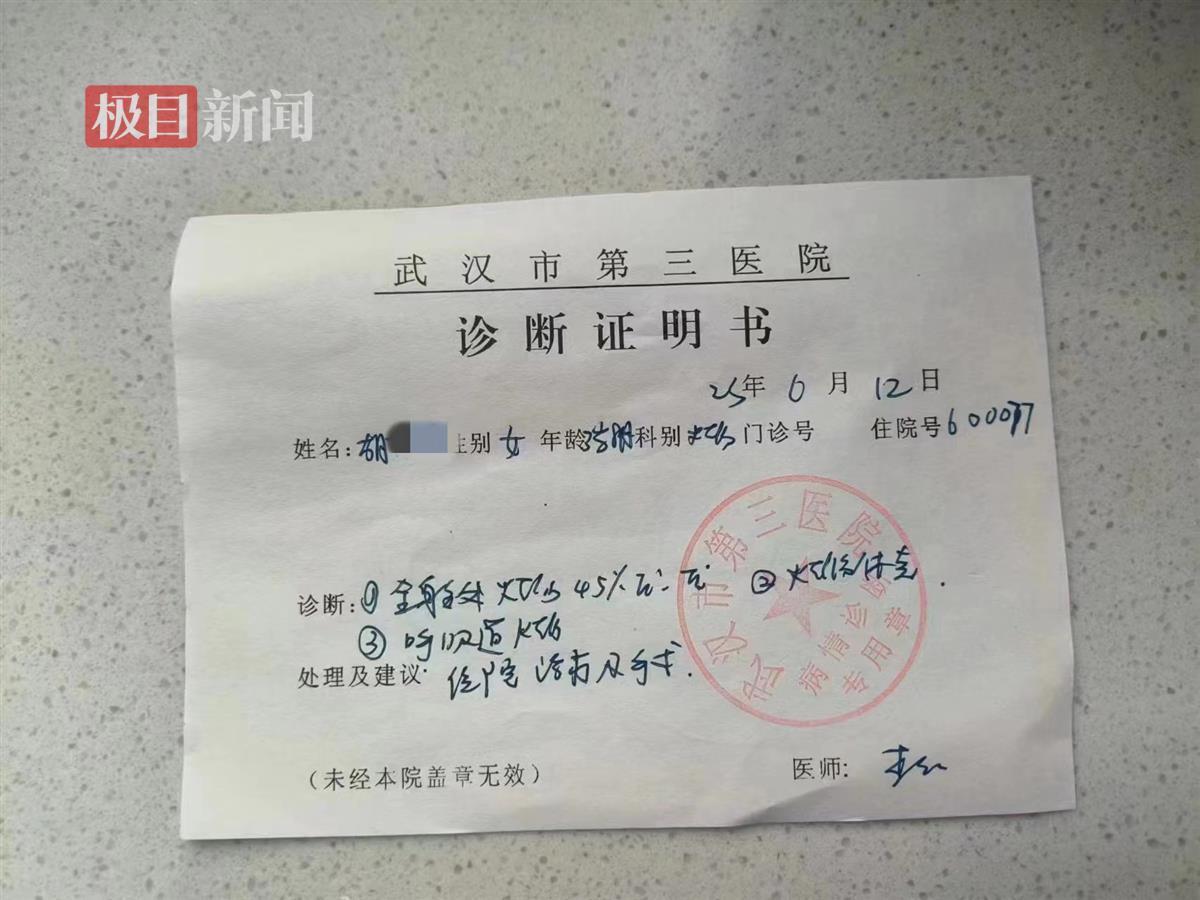 极目新闻
武汉市第三医院
诊断证明书
25年6月12日
姓名:胡 性别女 年龄 科别火伤 门诊号 住院号600097
诊断:① 全身多处火伤45%Ⅱ-Ⅲ° ② 火伤休克.
③ 呼吸道火伤
处理及建议: 住院治疗及手术.
(未经本院盖章无效) 医师:
武汉市第三医院
病情诊断
专用章